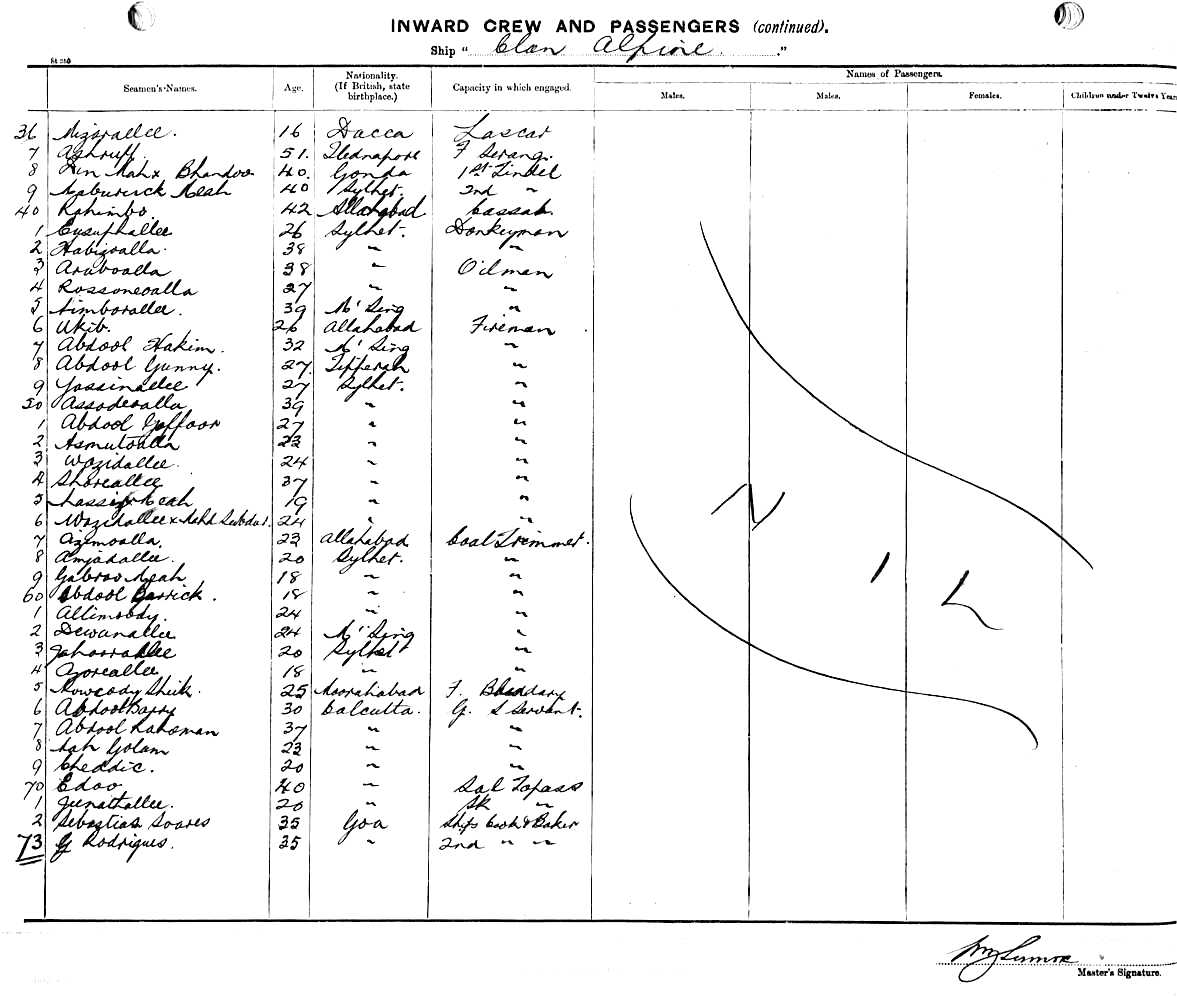 INWARD CREW AND PASSENGERS (continued).
Ship "Clan Alpine."
St 350
Seamen's Names. Age. Nationality. (If British, state birthplace.) Capacity in which engaged. Names of Passengers.
Males. Males. Females. Children under Twelve Years
36 Mizorallee. 16 Dacca Lascar
7 Ashruff. 51. F Serang.
8 Din Mahx Bhandoo 40. Gonda 1st Tindel
9 Meah 40 Sylhet. 2nd "
40 Rahimbo. 42 Allahabad Cassab.
1 Eusuphallee 26 Sylhet. Donkeyman
2 Habizoalla. 38 " "
3 Aruboalla 38 " Oilman
4 Rossoneoalla 27 " "
5 Aimborallee. 39 M'Sing "
6 Ukib. 26 Allahabad Fireman
7 Abdool Hakim. 32 M'Sing "
8 Abdool Gunny. 27. Tipperah "
9 Yassinallee 27 Sylhet. "
50 Assoderalla 39 " "
1 Abdool Goffoor 27 " "
2 Asmutoalla 23 " "
3 Wozidallee. 24 " "
4 Shoreallee 37 " "
5 Meah 19 " "
6 Wozidallee x 24 " "
7 Azimoalla. 23 Allahabad Coal Trimmer.
8 Amjadallee. 20 Sylhet. "
9 Gabroo Meah 18 " "
60 Abdool Barrick. 18 " "
1 Allimoody. 24 " "
2 Dewanallee 24 M'Sing "
3 20 Sylhet "
4 Azoreallee 18 " "
5 Sheik. 25 Moorahabad F. Bhandary
6 Abdool Barry 30 Calcutta. G. S Servant.
7 Abdool Rahoman 37 " "
8 Golam 23 " "
9 Cheddic. 20 " "
70 Edoo 40 " Sal Topass
1 Junathallee. 20 " SK "
2 Sebastias Soares 35 Goa Ships Cook & Baker
73 G Rodrigues. 35 " 2nd " "
N I L
Master's Signature.